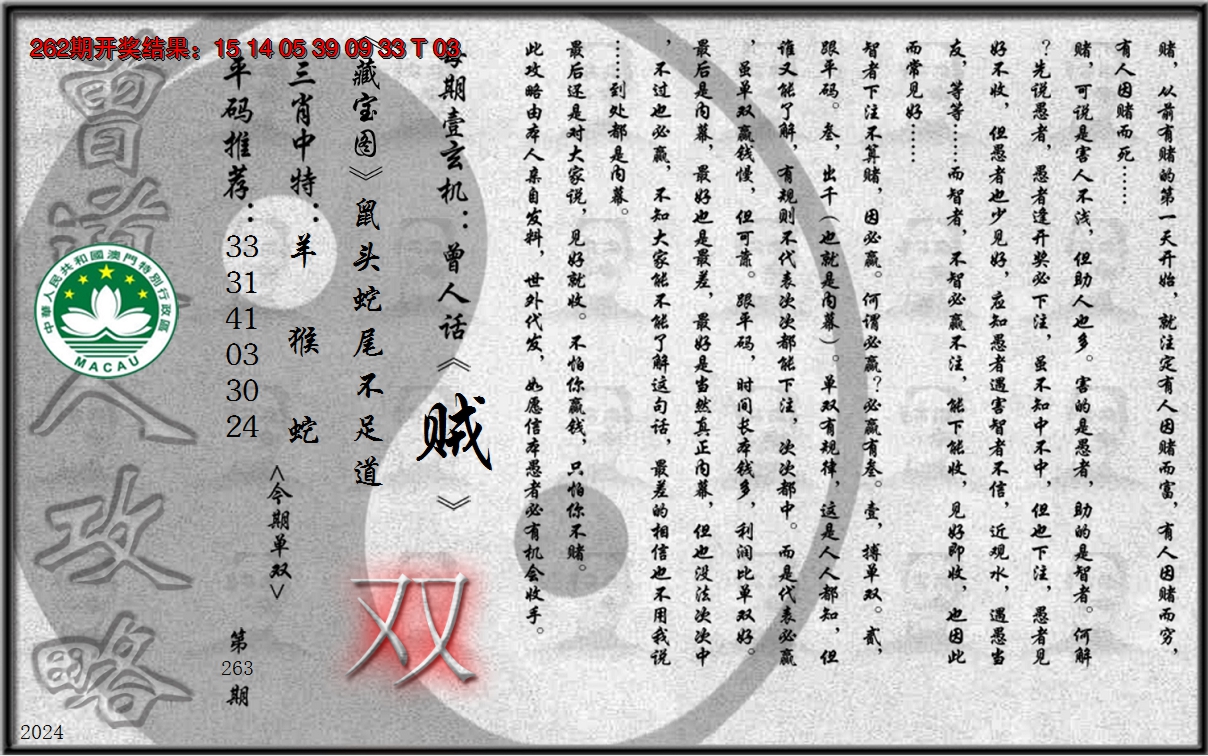 262期开奖结果：15 14 05 39 09 33 T 03
赌，从前有赌的第一天开始，就注定有人因赌而富，有人因赌而穷，
有人因赌而死……
赌，可说是害人不浅，但助人也多。害的是愚者，助的是智者。何解
？先说愚者，愚者逢开奖必下注，虽不知中不中，但也下注，愚者见
好不收，但愚者也少见好，应知愚者遇害智者不信，近观水，遇愚当
友，等等……而智者，不智必赢不注，能下能收，见好即收，也因此
而常见好……
智者下注不算赌，因必赢。何谓必赢？必赢有叁。壹，搏单双。贰，
跟平码。叁，出千（也就是内幕）。单双有规律，这是人人都知，但
谁又能了解，有规则不代表次次都能下注，次次都中。而是代表必赢
，虽单双赢钱慢，但可靠。跟平码，时间长本钱多，利润比单双好。
最后是内幕，最好也是最差，最好是当然真正内幕，但也没法次次中
，不过也必赢，不知大家能不能了解这句话，最差的相信也不用我说
……到处都是内幕。
最后还是对大家说，见好就收。不怕你赢钱，只怕你不赌。
此攻略由本人亲自发料，世外代发，如愿信本愚者必有机会收手。
每期壹玄机：曾人话《贼》
《藏宝图》鼠头蛇尾不足道
双
三肖中特：羊 猴 蛇
<今期单双>
平码推荐：33 31 41 03 30 24
第263期
曾道人攻略
中華人民共和國澳門特別行政區
MACAU
2024